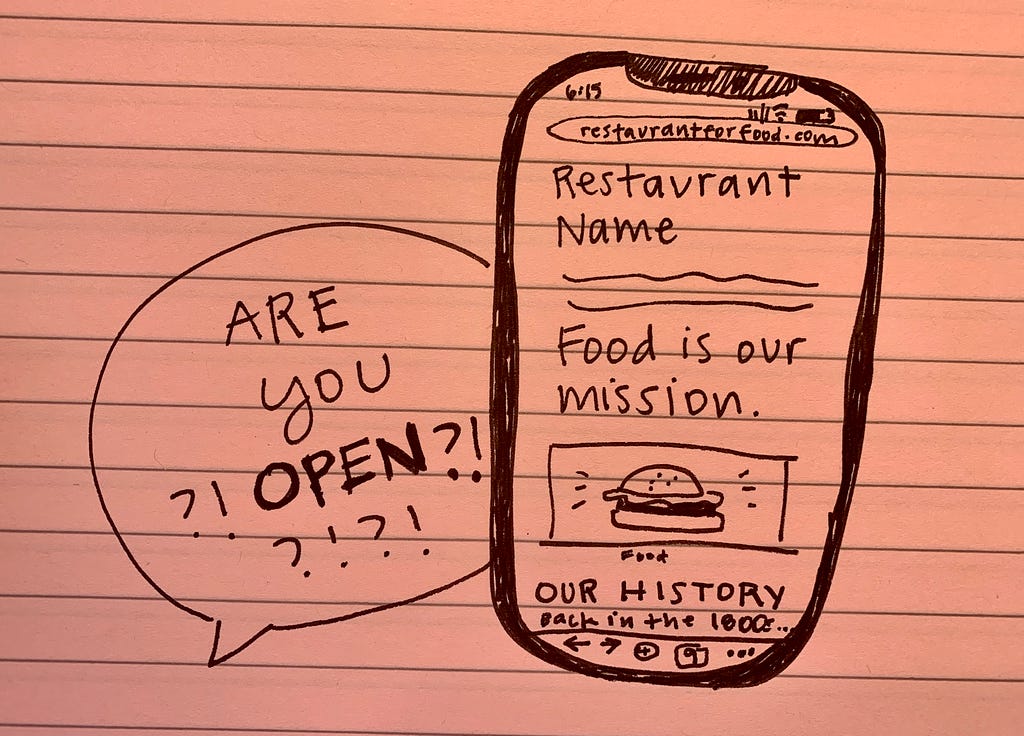 ARE
YOU
?! OPEN?!
?!?!
6:15
restaurantforfood.com
Restaurant
Name
Food is our
mission.
Food
OUR HISTORY
Back in the 1800s...
9